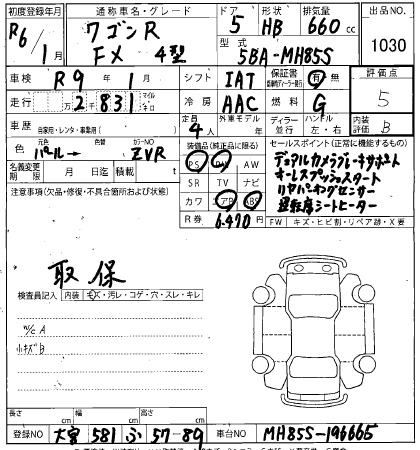 初度登録年月 通称車名・グレード ドア 形状 排気量 出品NO.
R6/1月 ワゴンR FX 4型 5 HB 660cc 1030
型式 5BA-MH85S
車検 R9年1月 シフト IAT 保証書 有 無 評価点 5
走行 2831 マイル キロ 冷房 AAC 燃料 G
車歴 自家用・レンタ・事業用( ) 定員 4人 外車モデル 年 ディーラー 並行 ハンドル 左・右 内装評価 B
色 元色 パール→ 色替 カラーNO ZVR
装備品(純正品に限る) セールスポイント(正常に機能するもの)
PS PW AW デュアルカメラブレーキサポート
名義変更期限 月 日迄 積載 t SR TV ナビ キーレスプッシュスタート
注意事項(欠品・修復・不具合箇所および状態) カワ エアB ABS リヤパーキングセンサー
運転席シートヒーター
R券 6,470円 FW キズ・ヒビ割・リペア跡・X要
取保
検査員記入 内装 キズ・汚レ・コゲ・穴・スレ・キレ
ワ/C A
小キズ B
長さ cm 幅 cm 高さ cm
登録NO 大宮 581 ふ 57-89 車台NO MH85S-196665